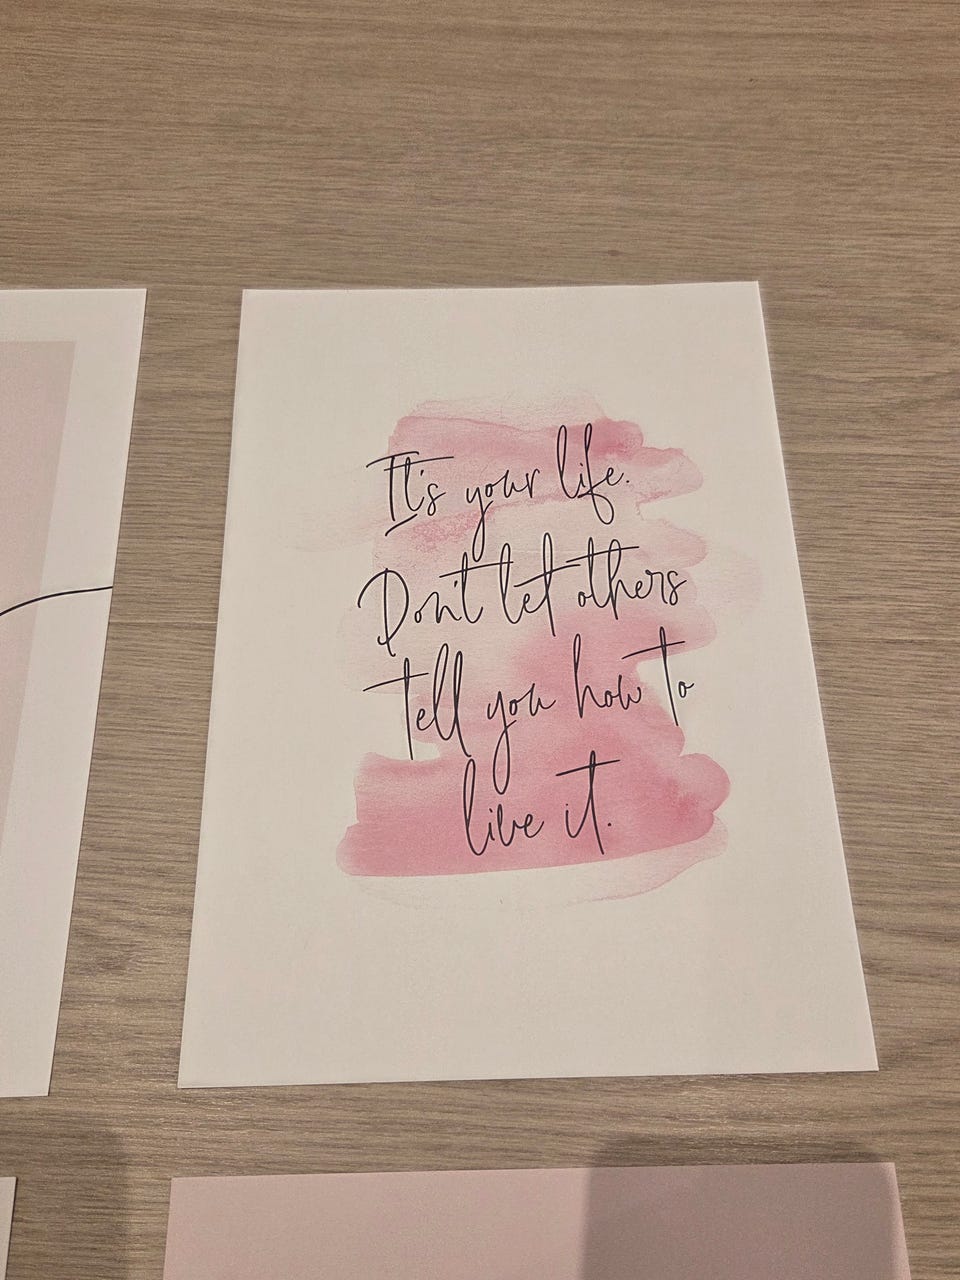 It's your life.
Don't let others
tell you how to
live it.